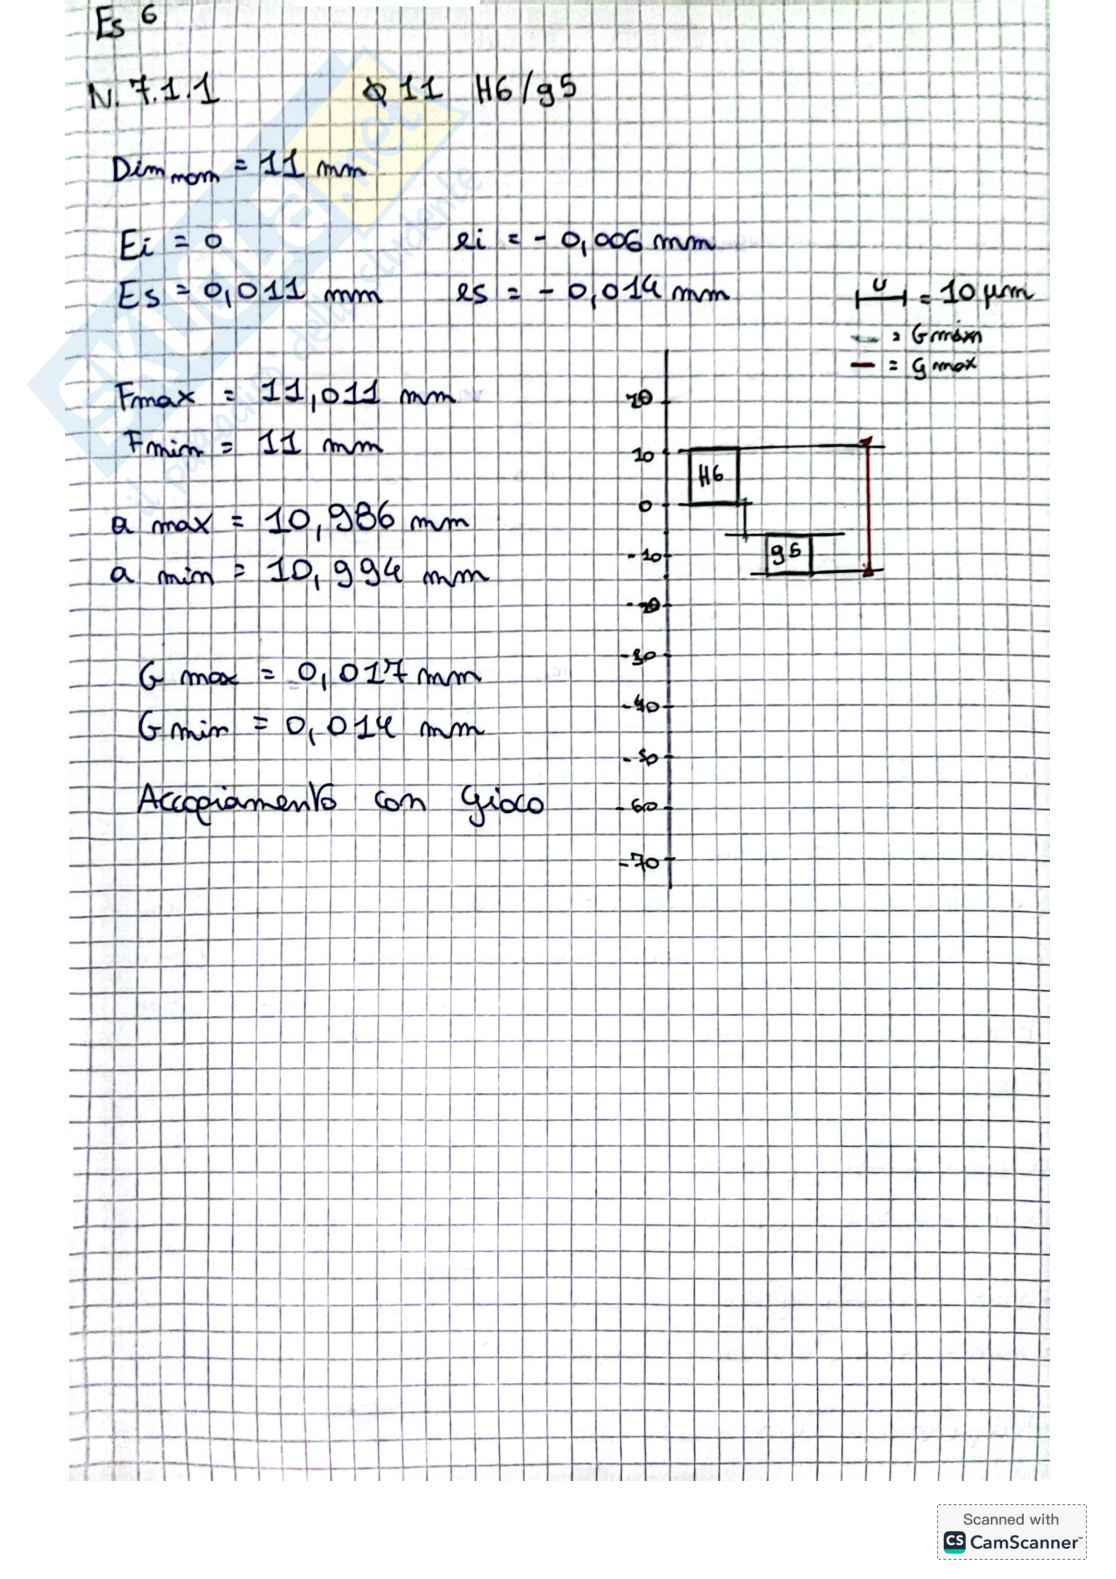 Es 6
N. 7.1.1 Φ 11 H6/g5
Dim nom = 11 mm
Ei = 0 ei = - 0,006 mm
Es = 0,011 mm es = - 0,014 mm
u = 10 μm
= Gmin
= Gmax
Fmax = 11,011 mm
Fmin = 11 mm
a max = 10,986 mm
a min = 10,994 mm
G max = 0,017 mm
G min = 0,014 mm
Accopiamento con gioco
20
10
0
-10
-20
-30
-40
-50
-60
-70
H6
g5
SKUOLA.net
il paradiso dello studente
Scanned with
CS CamScanner